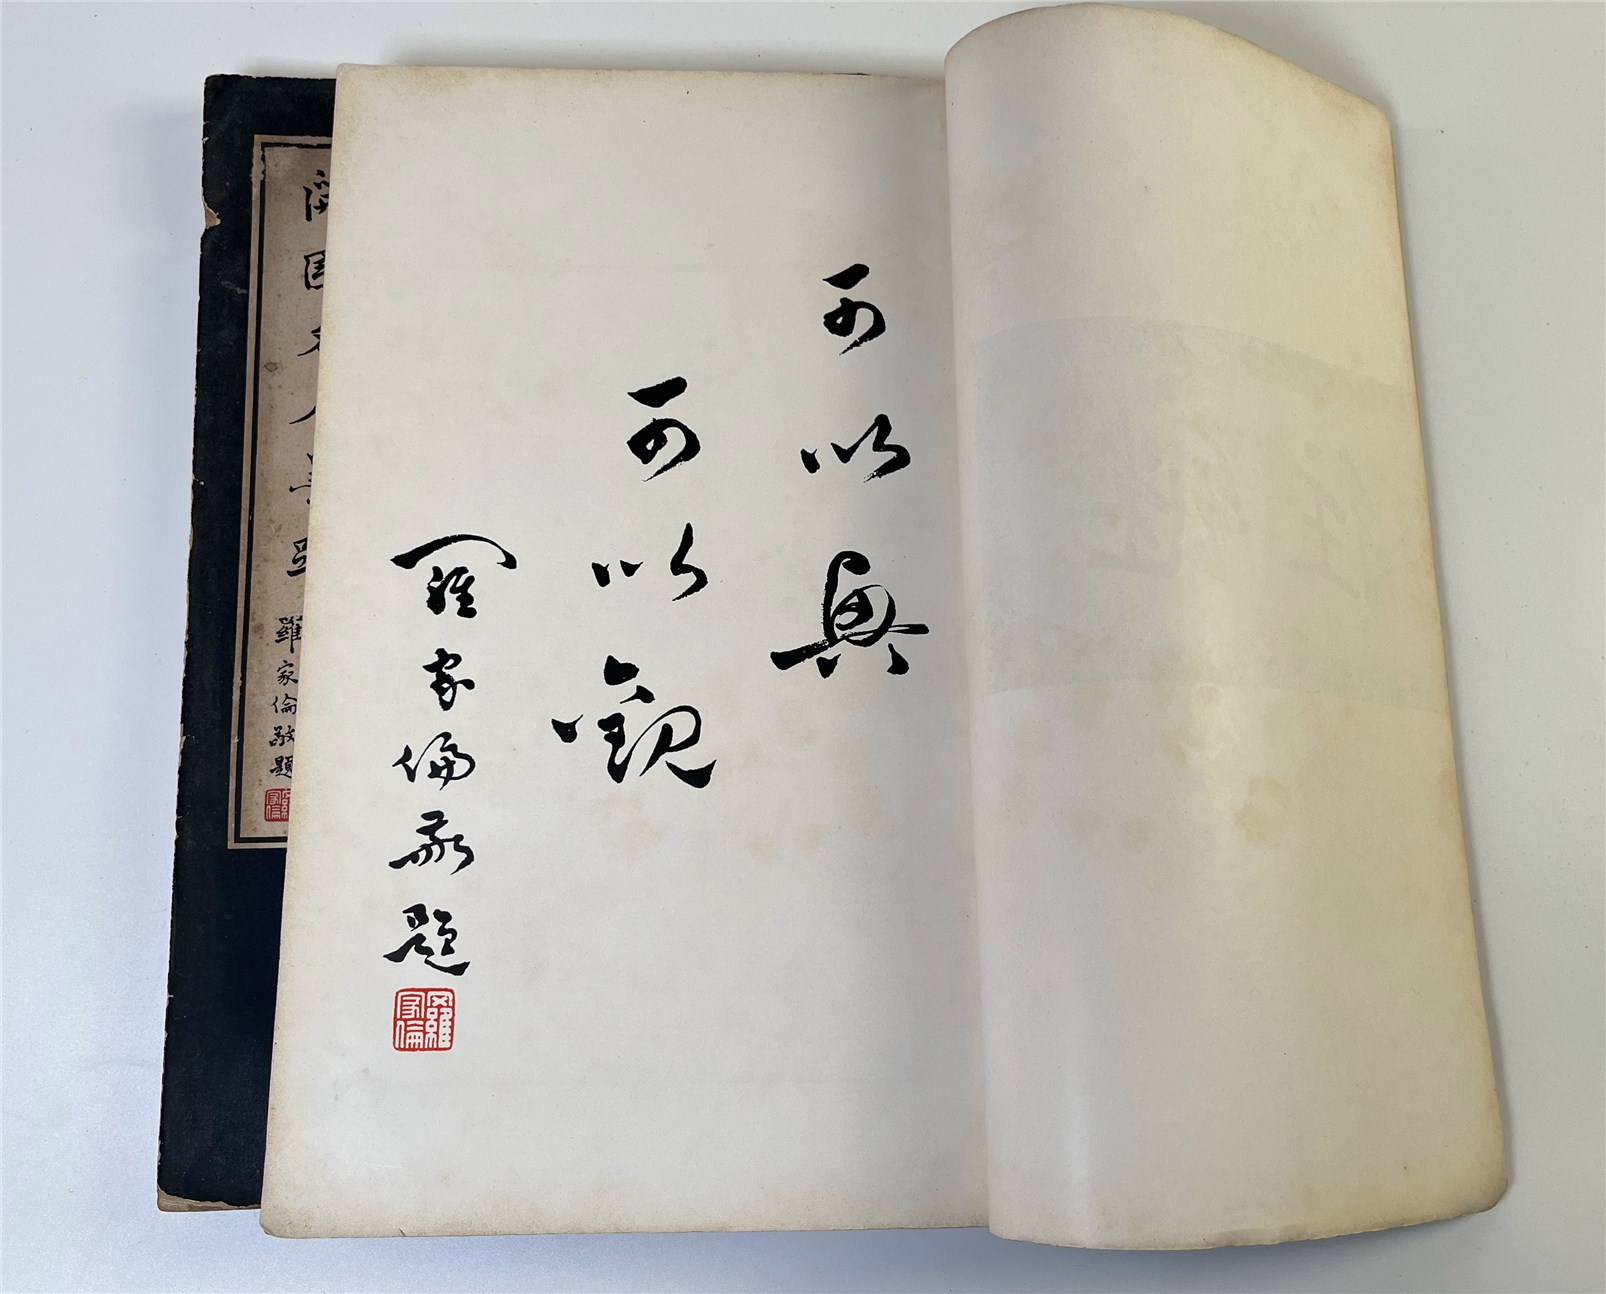 可以興
可以觀
羅家倫敬題
羅家倫
開國名人墨蹟
羅家倫敬題